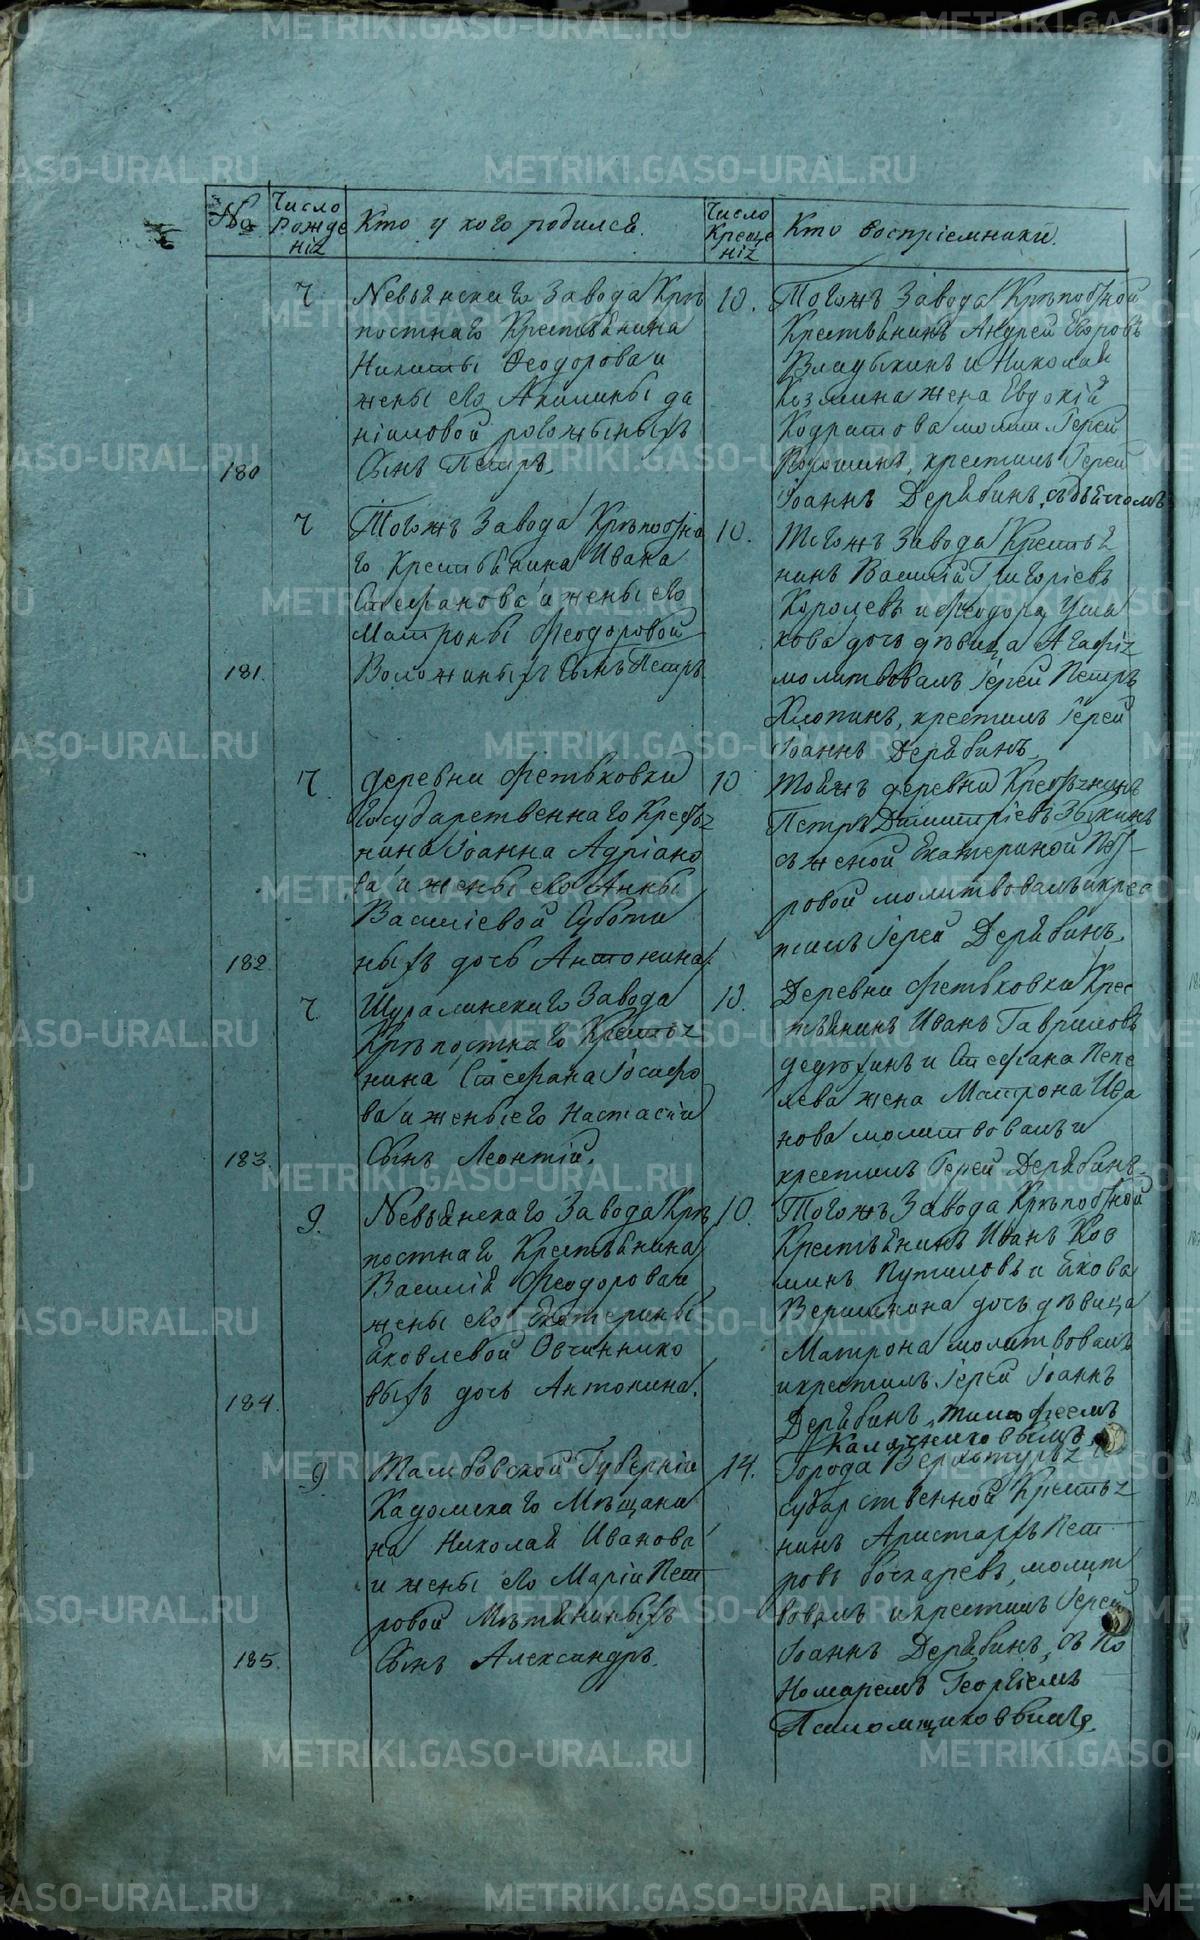 №
Число Рожденіz
Кто у кого родился.
Число Крещеніz
Кто воспріемники.
7
Невьѣнскаго Завода Крѣ
постнаго Крестьѣнина
Никиты Феодорова и
жены его Акилины да
ніиловой
180
Сынъ Петръ.
10.
Тогожъ Завода Крѣпостной
Крестьѣнинъ Андрей
Владыкинъ и Николая
Козмина жена Евдокіѣ
Кодратова молит. Іерей
крестилъ Іерей
Іоаннъ Дерѣбинъ, съ дьѣчкомъ
7
Тогожъ Завода Крѣпостна
го Крестьѣнина Ивана
Стефанова и жены его
Матроны Феодоровой
181.
Воложиныхъ Сынъ Петръ.
10.
Тогожъ Завода Крестьѣ
нинъ Василій Григоріевъ
Королевъ и Феодора Уша
кова дочь дѣвица Агафіz
молитвовалъ Іерей Петръ
Хлопинъ, крестилъ Іерей
Іоаннъ Дерѣбинъ.
7
деревни Фетьковки
Государственнаго Крестьz
нина Іоанна Адріано
ва и жены его Анны
Василіевой Суботи
182.
ныхъ дочь Антонина.
10
Тойжъ деревни Крестьzнинъ
Петръ Димитріевъ
съ женой Екатериной Пет
ровой молитвовалъ и крес
тилъ Іерей Дерѣбинъ.
7
Шуралинскаго Завода
Крѣпостнаго Крестьz
нина Стефана Іосифо
ва и жены его Настасіи
183.
Сынъ Леонтій.
10.
Деревни Фетьковки Крес
тьѣнинъ Иванъ Гавриловъ
и Стефана Пепе
лева жена Матрона Ива
нова молитвовалъ и
крестилъ Іерей Дерѣбинъ
9.
Невьѣнскаго Завода Крѣ
постнаго Крестьѣнина
Василіѣ Феодорова и
жены его Екатерины
Ѣковлевой Овчиннико
184.
выхъ дочь Антонина.
10.
Тогожъ Завода Крѣпостной
Крестьѣнинъ Иванъ Коз
минъ Путиловъ и Ѣкова
Вершинина дочь дѣвица
Матрона молитвовалъ
и крестилъ Іерей Іоаннъ
Дерѣбинъ, Тимофеемъ
Калашниковымъ.
9
Тамбовской Губерніи
Кадомскаго Мѣщани
на Николаѣ Иванова
и жены его Маріи Пет
ровой
185.
Сынъ Александръ.
14.
Города Верхотурьz го
сударственной Крестьz
нинъ Аристархъ Пет
ровъ молит
вовалъ и крестилъ Іерей
Іоаннъ Дерѣбинъ, съ По
номаремъ Георгіемъ
Паломщиковымъ.
METRIKI.GASO-URAL.RU